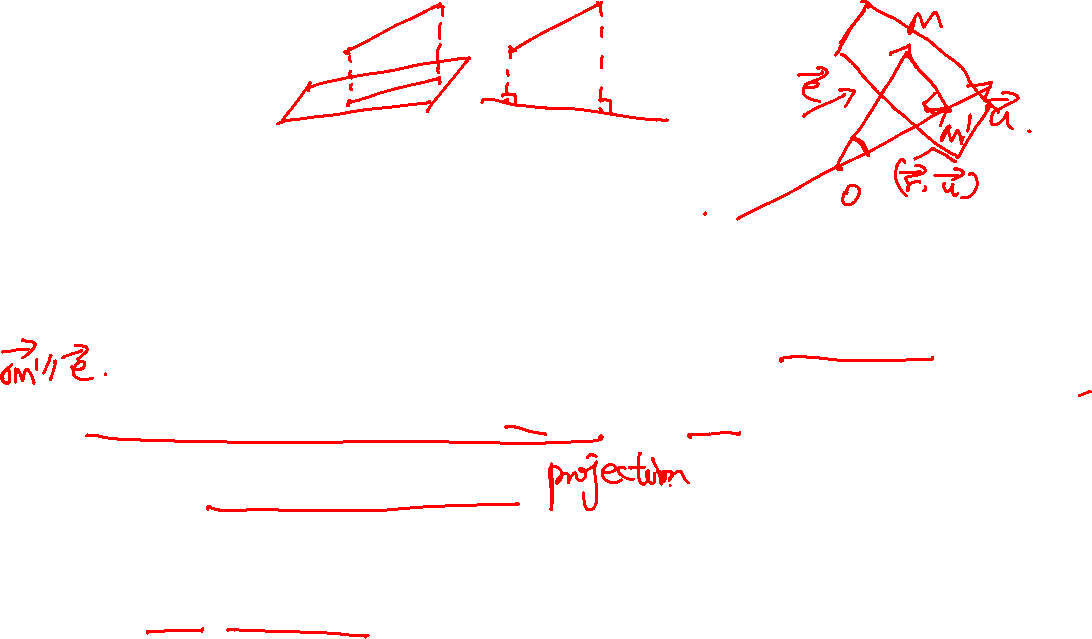 M
\vec{e}
\vec{u}.
M'
O
(\vec{r}, \vec{u})
\vec{OM'} // \vec{e}.
projection